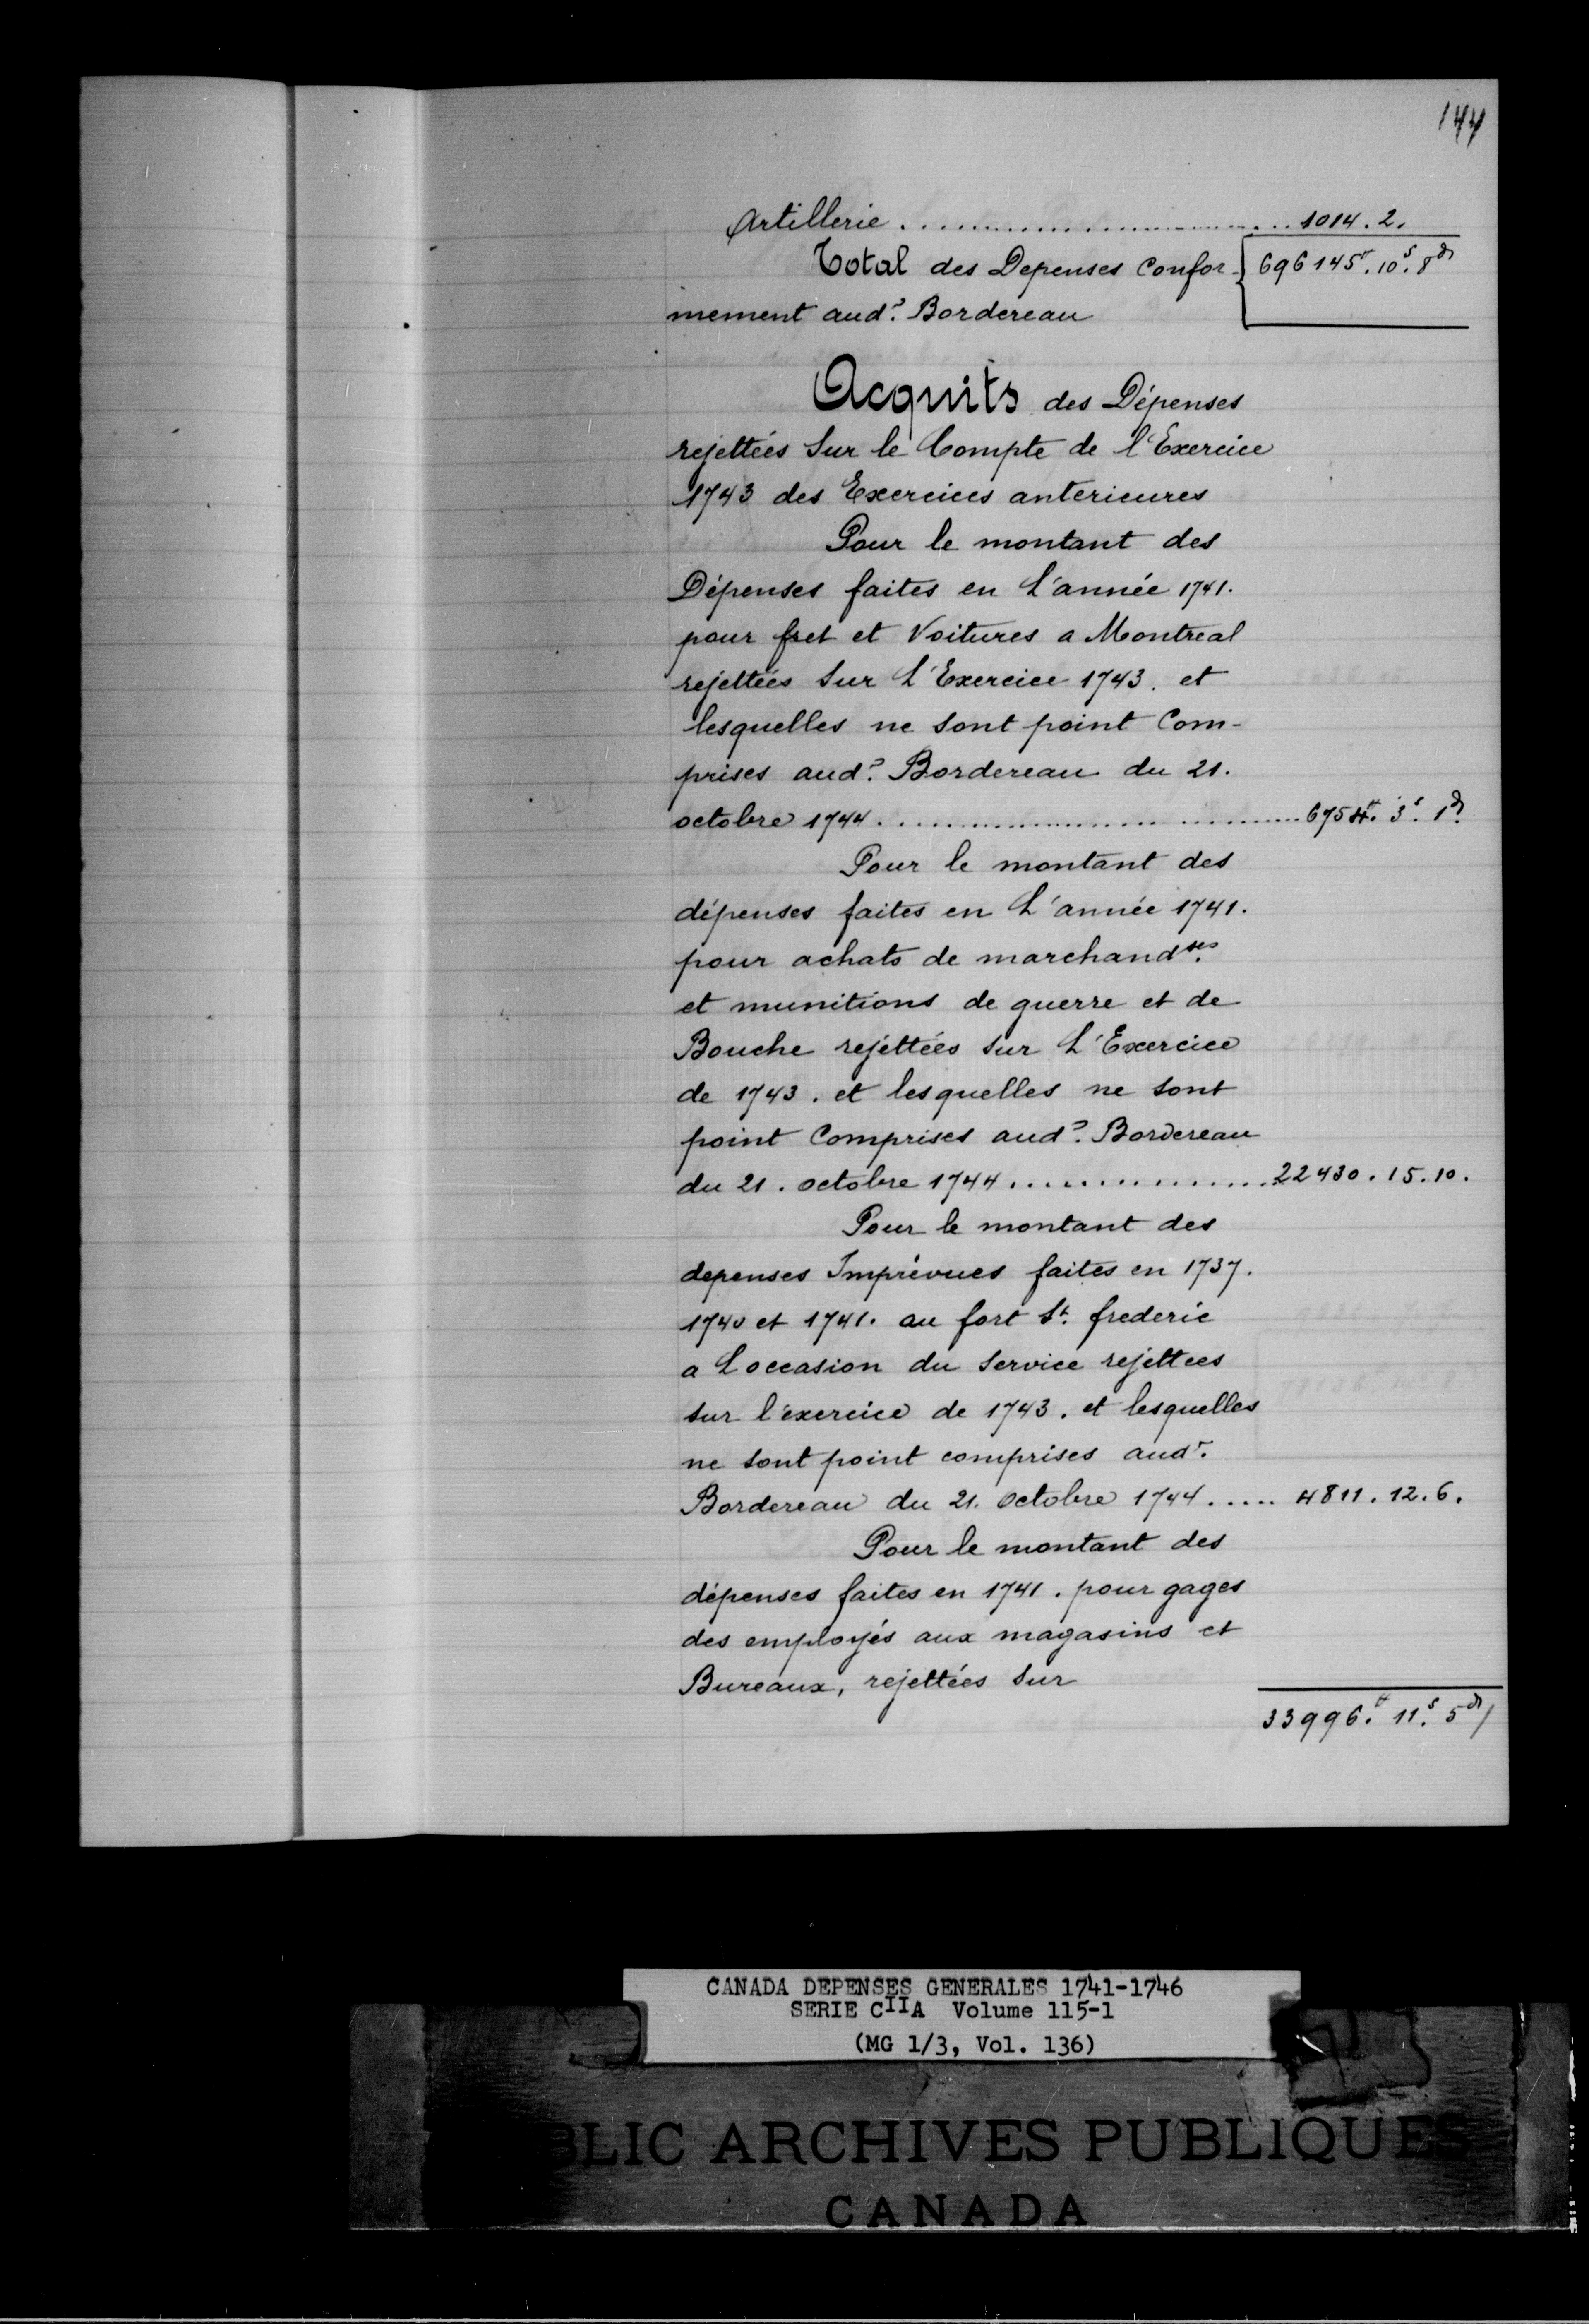 144
Artillerie ........................ 1014. 2.
Total des Depenses Confor- 696145ᵗᵗ. 10ˢ. 8ᵈ
mement audᵗ. Bordereau
Acquits des Dépenses
rejettées Sur le Compte de l'Exercice
1743 des Exercices anterieures
Pour le montant des
Dépenses faites en L'année 1741.
pour fret et Voitures a Montreal
rejettées Sur L'Exercice 1743. et
lesquelles ne sont point Com-
prises audᵗ. Bordereau du 21.
octobre 1744 ........................ 6754ᵗᵗ. 3ˢ. 1ᵈ.
Pour le montant des
dépenses faites en L'année 1741.
pour achats de marchandˢᵉˢ.
et munitions de guerre et de
Bouche rejettées sur L'Exercice
de 1743. et lesquelles ne sont
point Comprises audᵗ. Bordereau
du 21. octobre 1744 ................ 22430. 15. 10.
Pour le montant des
depenses Imprévues faites en 1737.
1740 et 1741. au fort Sᵗ. frederic
a Loccasion du Service rejettees
sur l'exercice de 1743. et lesquelles
ne sont point comprises audᵗ.
Bordereau du 21. Octobre 1744 ..... 4811. 12. 6.
Pour le montant des
dépenses faites en 1741. pour gages
des employés aux magasins et
Bureaux, rejettées sur
33996.ᵗᵗ 11.ˢ 5ᵈ/
CANADA DEPENSES GENERALES 1741-1746
SERIE CIIA Volume 115-1
(MG 1/3, Vol. 136)
BLIC ARCHIVES PUBLIQUES
CANADA